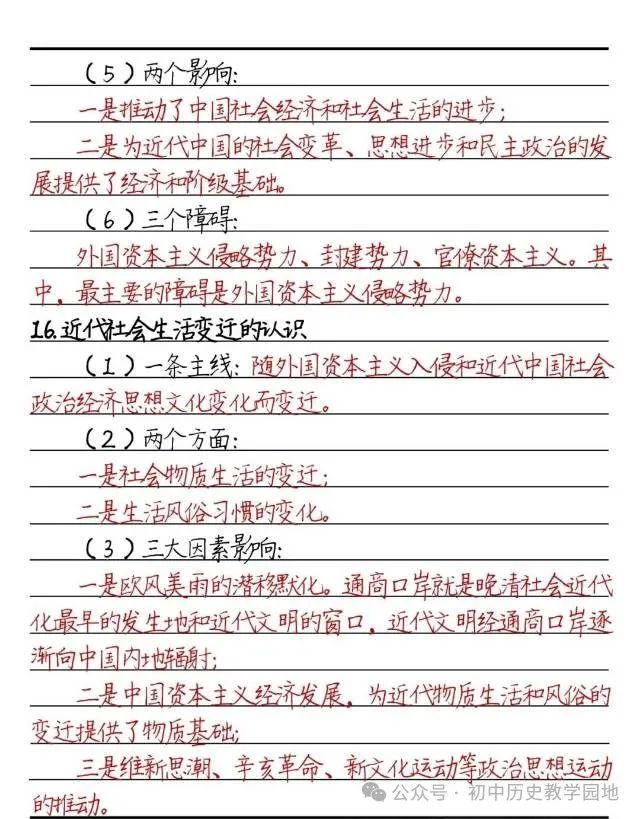 （5）两个影响：
一是推动了中国社会经济和社会生活的进步；
二是为近代中国的社会变革、思想进步和民主政治的发
展提供了经济和阶级基础。
（6）三个障碍：
外国资本主义侵略势力、封建势力、官僚资本主义。其
中，最主要的障碍是外国资本主义侵略势力。
16.近代社会生活变迁的认识
（1）一条主线：随外国资本主义入侵和近代中国社会
政治经济思想文化变化而变迁。
（2）两个方面：
一是社会物质生活的变迁；
二是生活风俗习惯的变化。
（3）三大因素影响：
一是欧风美雨的潜移默化。通商口岸就是晚清社会近代
化最早的发生地和近代文明的窗口，近代文明经通商口岸逐
渐向中国内地辐射；
二是中国资本主义经济发展，为近代物质生活和风俗的
变迁提供了物质基础；
三是维新思潮、辛亥革命、新文化运动等政治思想运动
的推动。
公众号·初中历史教学园地